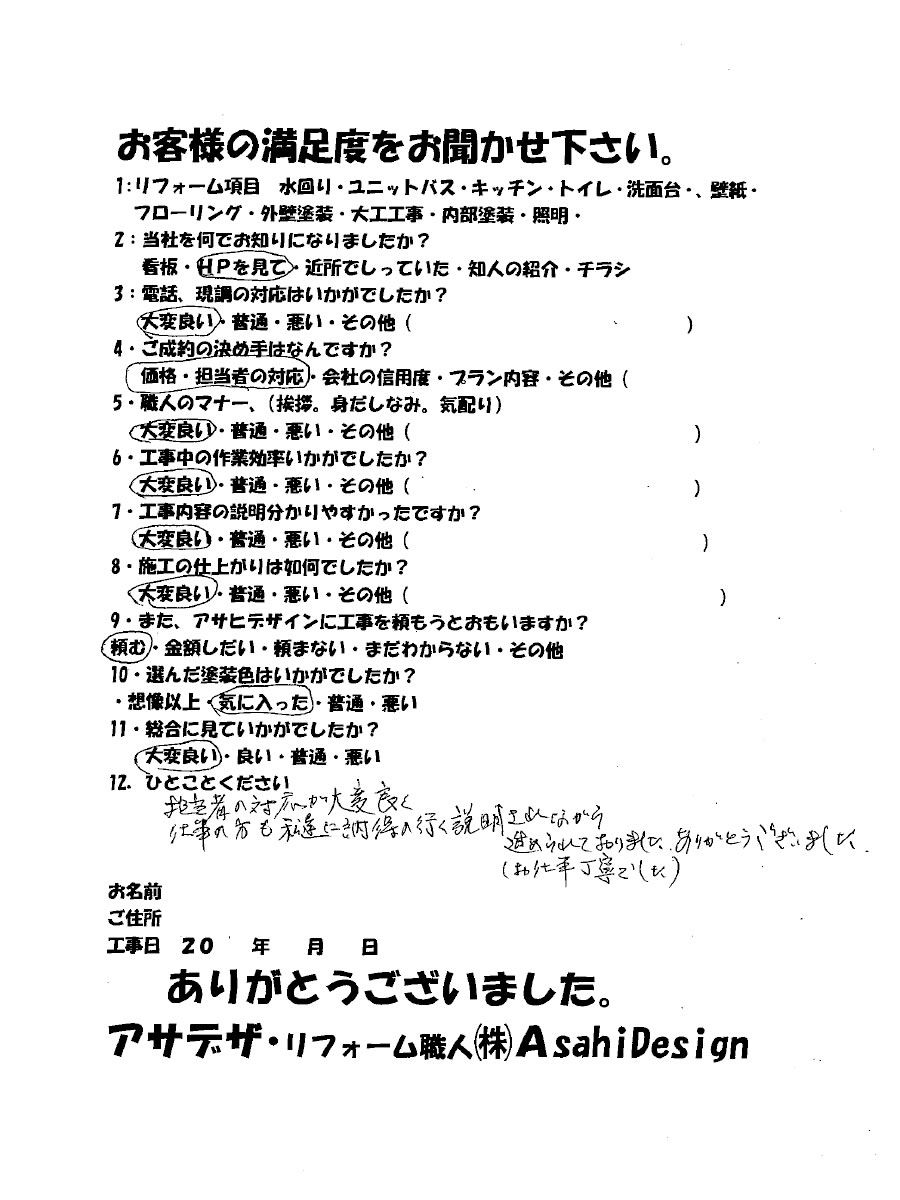 お客様の満足度をお聞かせ下さい。
1:リフォーム項目　水回り・ユニットバス・キッチン・トイレ・洗面台・、壁紙・
フローリング・外壁塗装・大工工事・内部塗装・照明・
2:当社を何でお知りになりましたか?
看板・HPを見て・近所でしっていた・知人の紹介・チラシ
3:電話、現調の対応はいかがでしたか?
大変良い・普通・悪い・その他(　　　)
4・ご成約の決め手はなんですか?
価格・担当者の対応・会社の信用度・プラン内容・その他(
5・職人のマナー、(挨拶。身だしなみ。気配り)
大変良い・普通・悪い・その他(　　　)
6・工事中の作業効率いかがでしたか?
大変良い・普通・悪い・その他(　　　)
7・工事内容の説明分かりやすかったですか?
大変良い・普通・悪い・その他(　　　)
8・施工の仕上がりは如何でしたか?
大変良い・普通・悪い・その他(　　　)
9・また、アサヒデザインに工事を頼もうとおもいますか?
頼む・金額しだい・頼まない・まだわからない・その他
10・選んだ塗装色はいかがでしたか?
・想像以上・気に入った・普通・悪い
11・総合に見ていかがでしたか?
大変良い・良い・普通・悪い
12. ひとことください
担当者の対応が大変良く
仕事の方も私達に納得の行く説明をしながら
進められておりました、ありがとうございました
(お仕事丁寧でした)
お名前
ご住所
工事日　20　年　月　日
ありがとうございました。
アサデザ・リフォーム職人㈱AsahiDesign